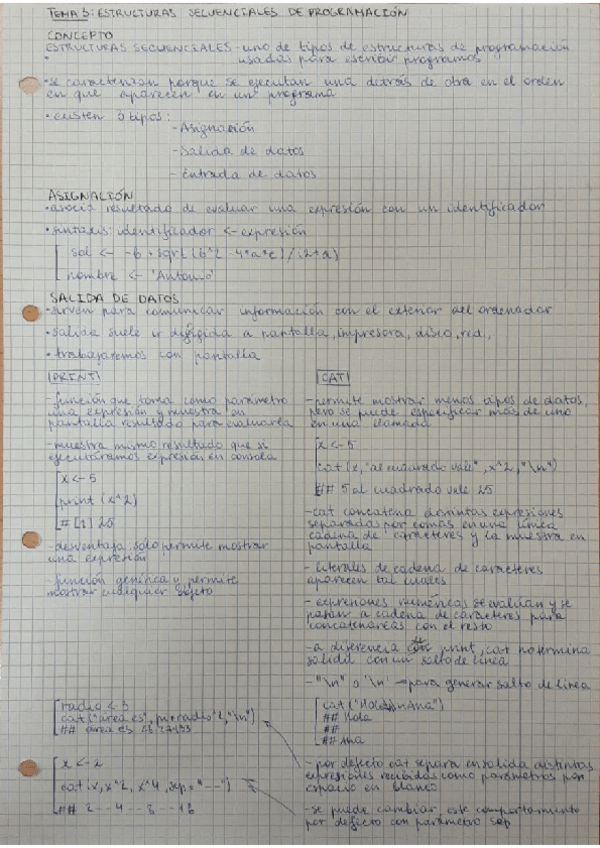 TEMA 3: ESTRUCTURAS SECUENCIALES DE PROGRAMACIÓN
CONCEPTO
ESTRUCTURAS SECUENCIALES - uno de tipos de estructuras de programación
usadas para escribir programas
• se caracterizan porque se ejecutan una detrás de otra en el orden
en que aparecen en un programa
• existen 3 tipos:
- Asignación
- Salida de datos
- Entrada de datos
ASIGNACIÓN
• asocia resultado de evaluar una expresión con un identificador
• sintaxis: identificador <- expresión
sol <- -b + sqrt(b^2 - 4*a*c) / (2*a)
nombre <- 'Antonio'
SALIDA DE DATOS
• sirven para comunicar información con el exterior del ordenador
• salida suele ir dirigida a pantalla, impresora, disco, red,
• trabajaremos con pantalla
PRINT
- función que toma como parámetro
una expresión y muestra en
pantalla resultado para evaluarla
- muestra mismo resultado que si
ejecutáramos expresión en consola
x <- 5
print (x^2)
# [1] 25
- desventaja, solo permite mostrar
una expresión
- función genérica y permite
mostrar cualquier objeto
CAT
- permite mostrar menos tipos de datos,
pero se puede especificar más de uno
en una llamada
x <- 5
cat(x, "al cuadrado vale", x^2, "\n")
## 5 al cuadrado vale 25
- cat concatena distintas expresiones
separadas por comas en una única
cadena de caracteres y la muestra en
pantalla
- literales de cadena de caracteres
aparecen tal cuales
- expresiones numéricas se evalúan y se
pasan a cadena de caracteres para
concatenarlas con el resto
- a diferencia print, cat no termina
salida con un salto de línea
- "\n" o '\n' → para generar salto de línea
radio <- 3
cat("área es", pi*radio^2, "\n")
## área es 28.27433
cat ("Hola\n\nAna")
## Hola
##
## Ana
x <- 2
cat(x, x^2, x^4, sep="--")
## 2--4--
- por defecto cat separa en salida distintas
expresiones recibidas como parámetros por
espacio en blanco
- se puede cambiar este comportamiento
por defecto con parámetro sep